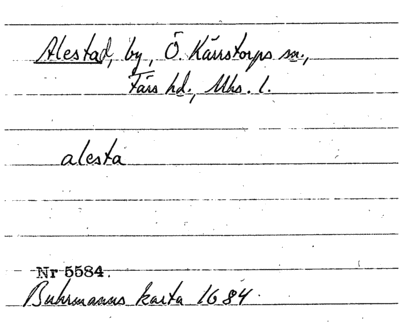 Alestad, by, Ö. Kärrstorps sn.,
Färs hd., Mhs. l.
alesta
Nr 5584.
Buhrmanns karta 1684.